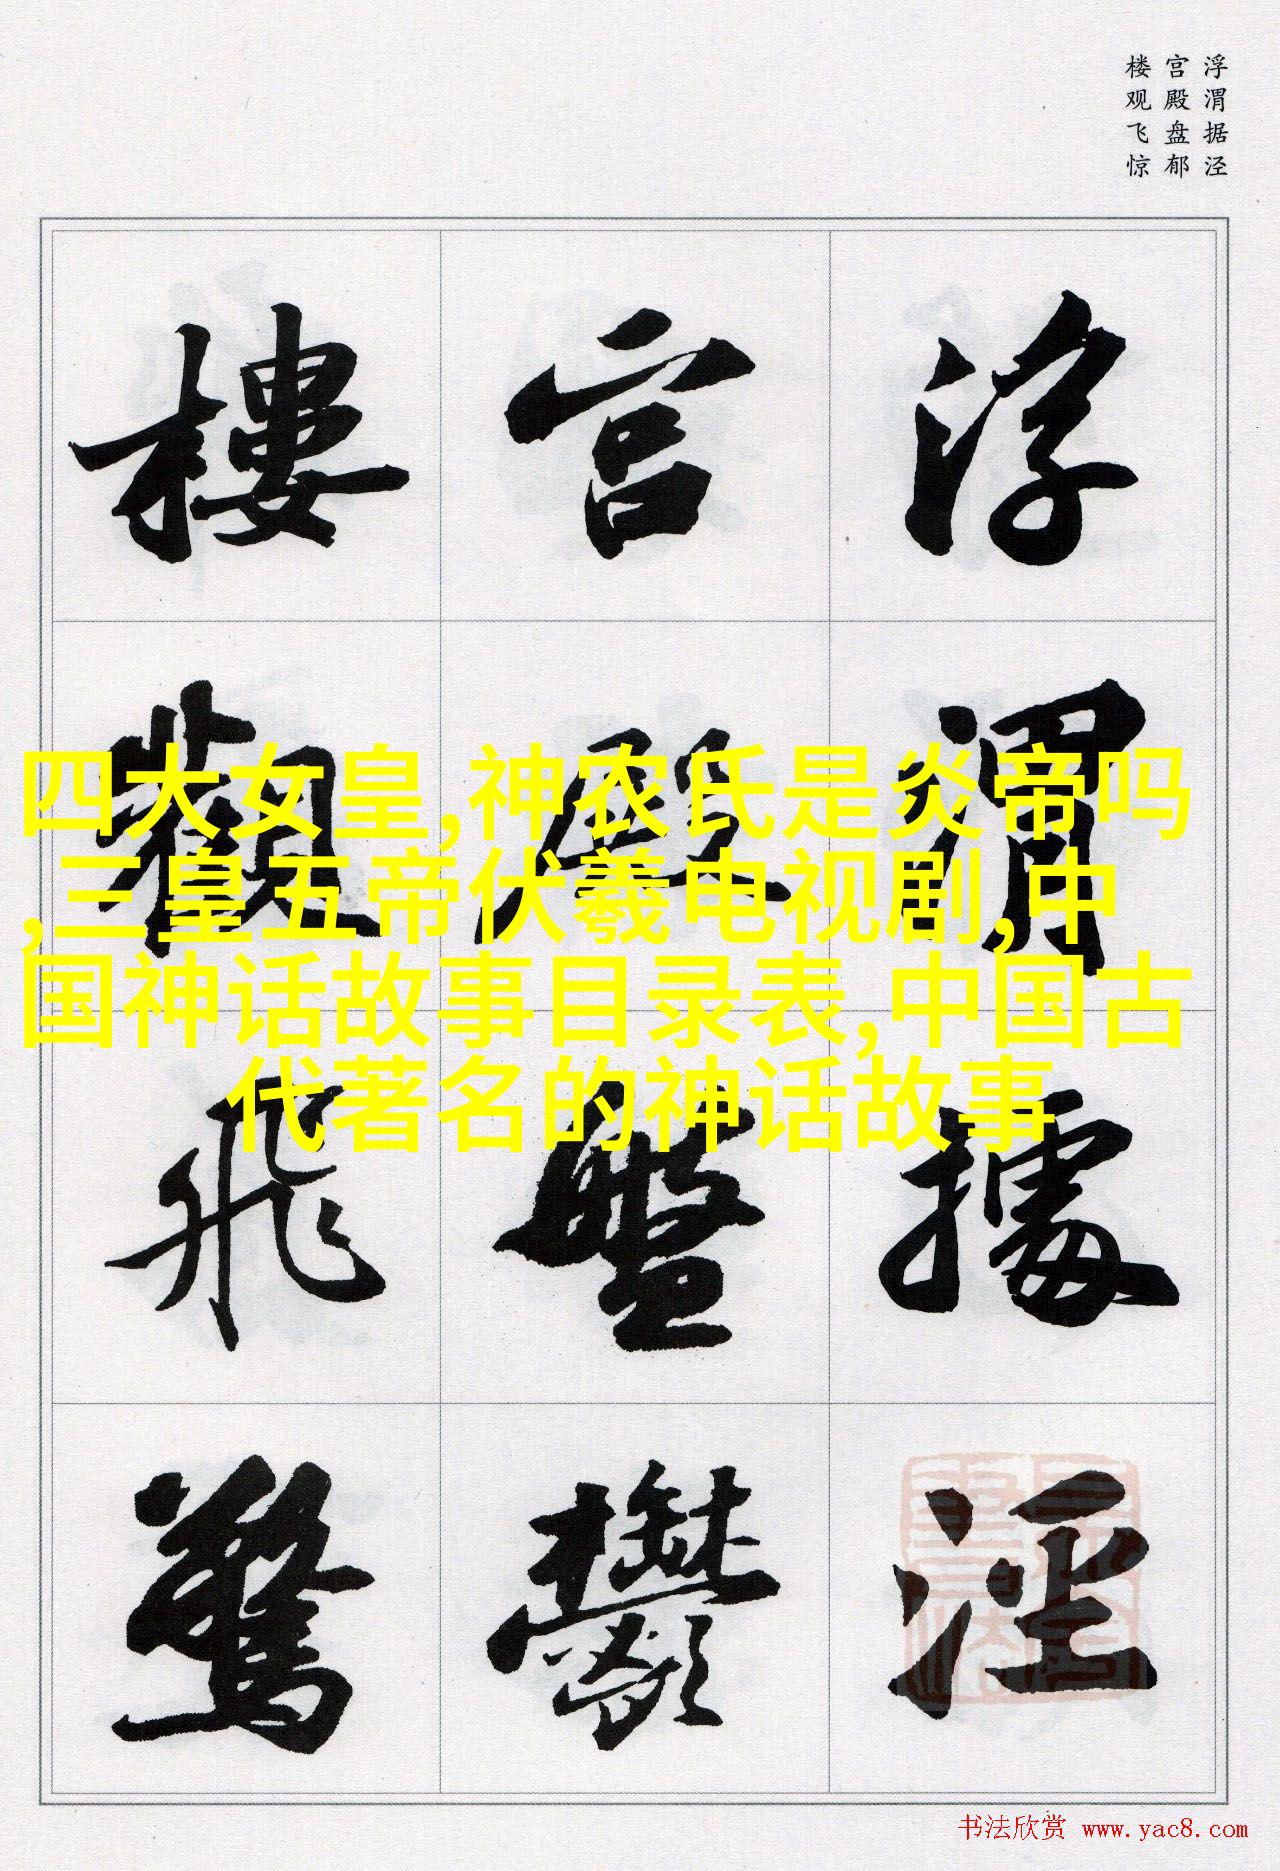 浮渭据泾
宫殿盘郁
楼观飞惊
浮渭據涇
宫殿盤鬱
樓觀飛驚
四大女皇,神农氏是炎帝吗
,三皇五帝伏羲电视剧,中
国神话故事目录表,中国古
代著名的神话故事
书法欣赏 www.yac8.com